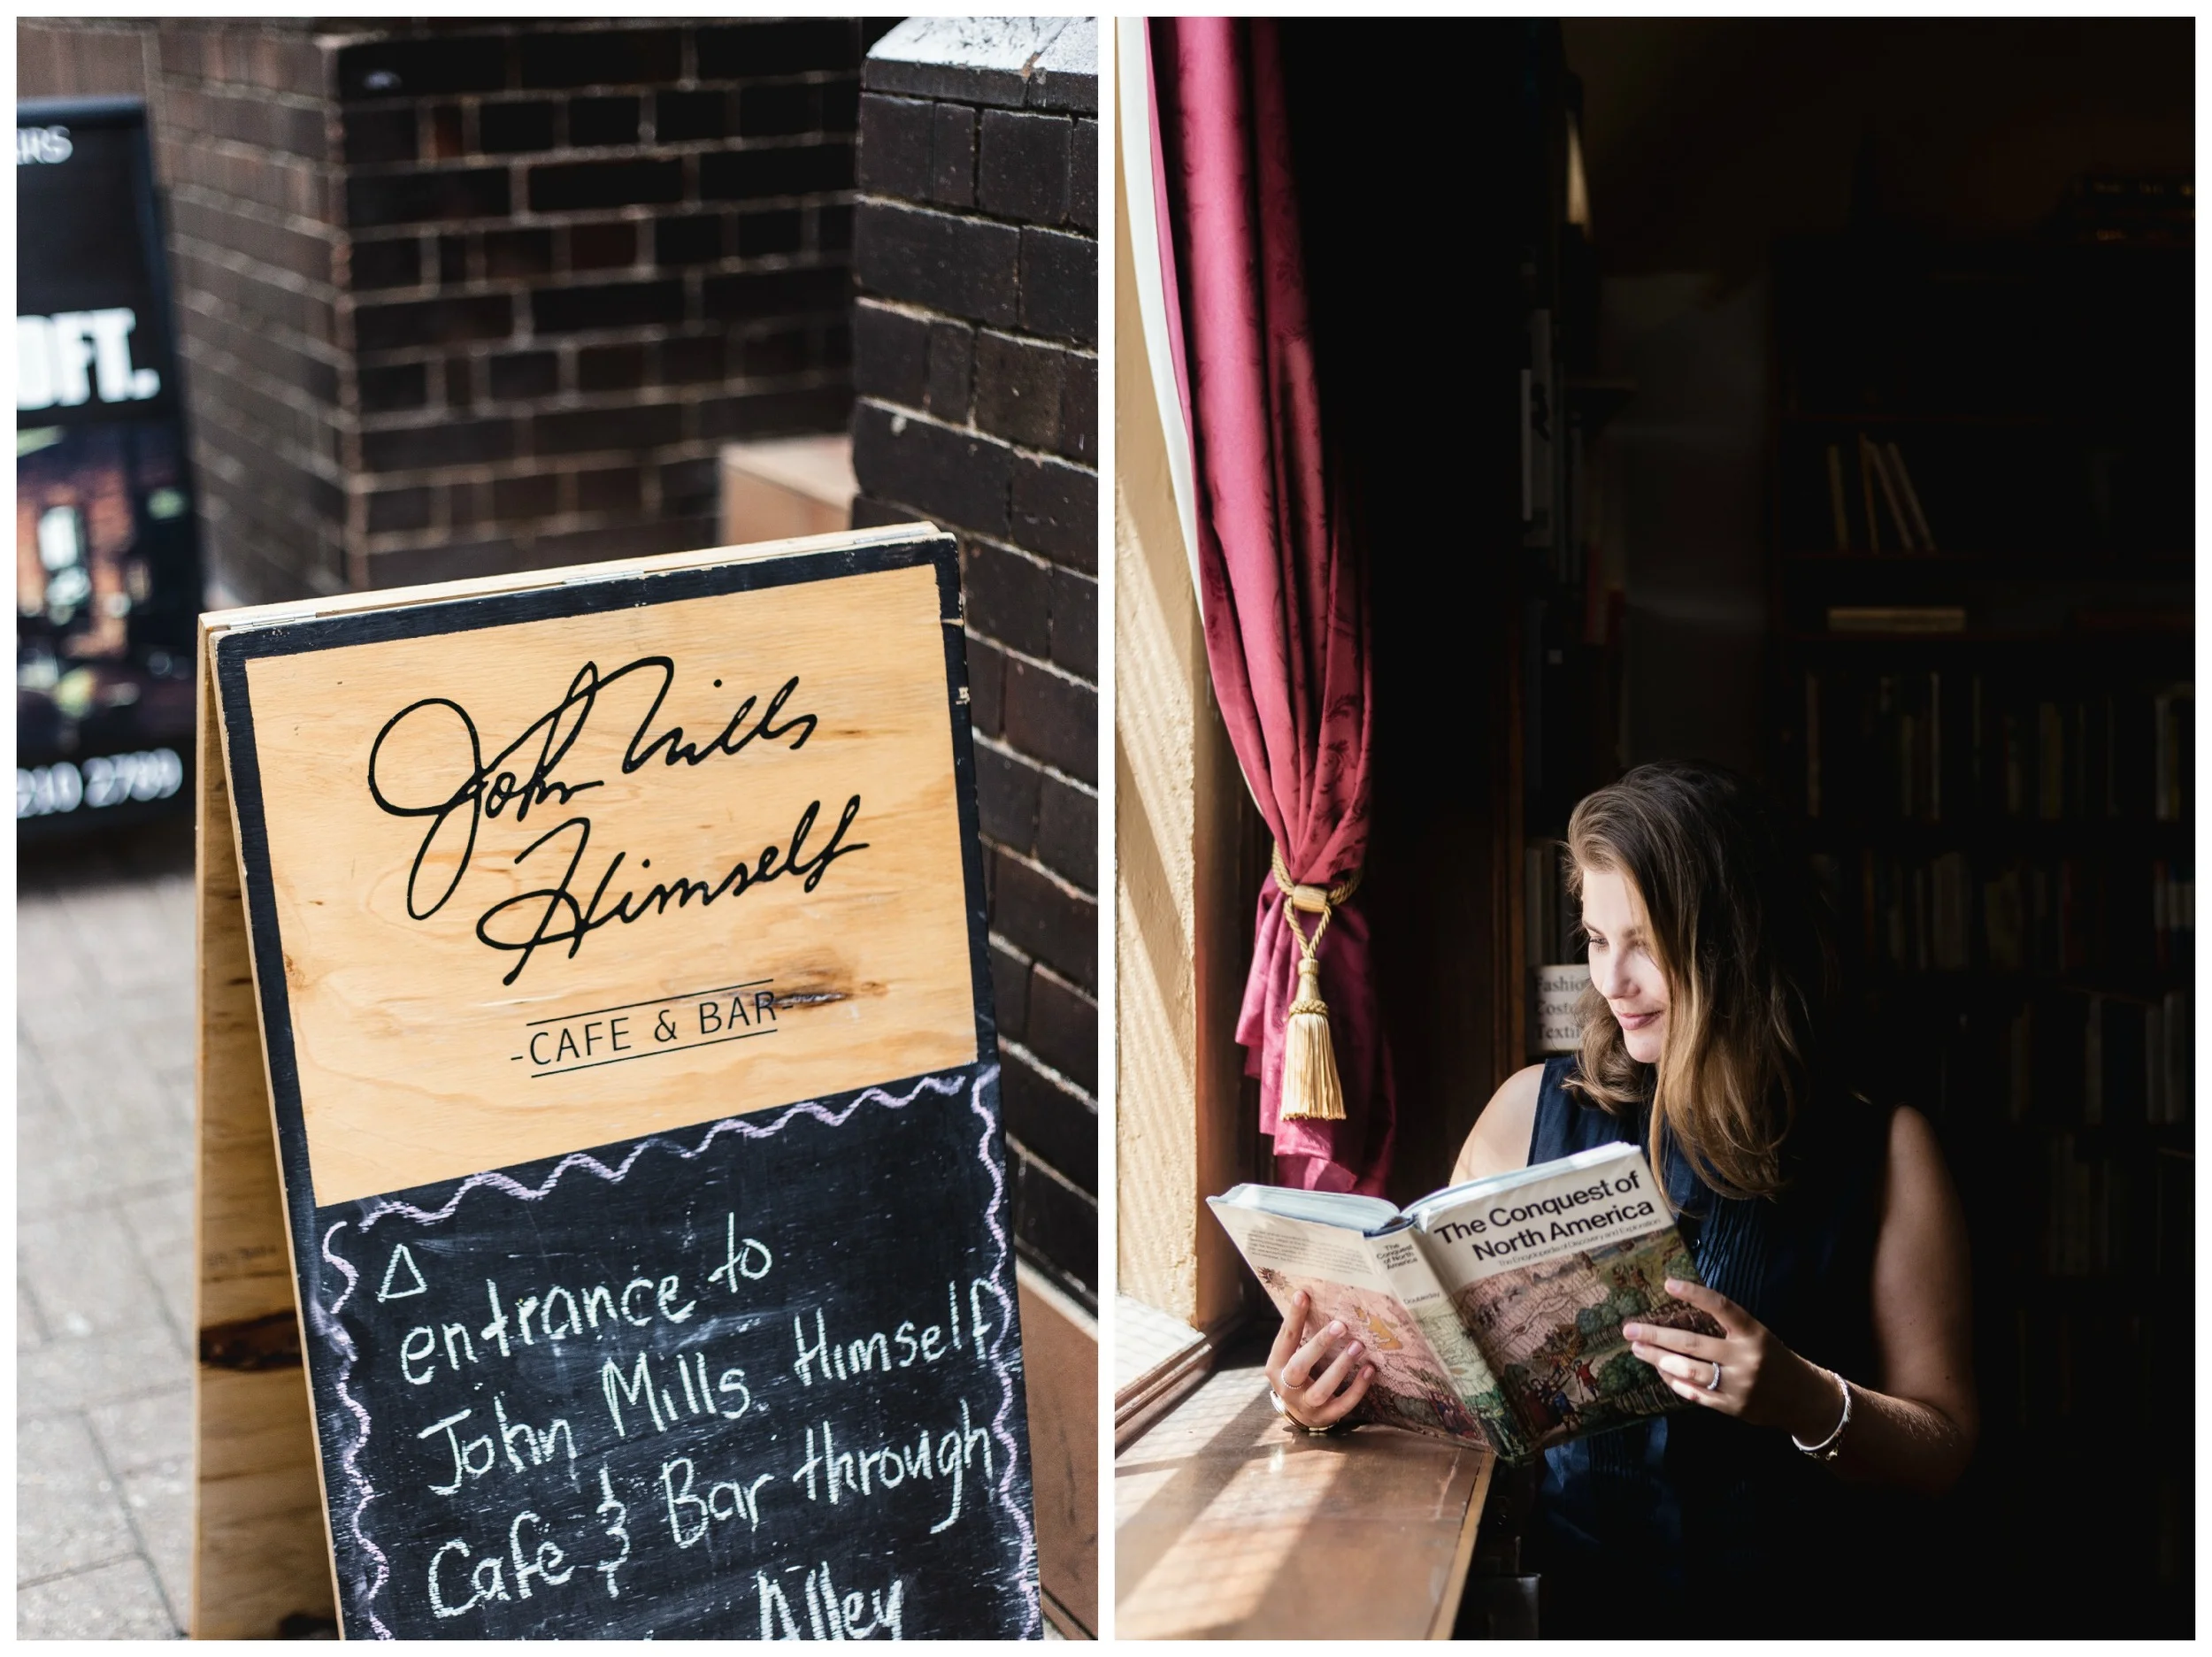 OFT.
210 2789
John Mills
Himself
-CAFE & BAR-
entrance to
John Mills Himself
Cafe & Bar through
Alley
Fashio
Costu
Textil
The Conquest of
North America
The Encyclopedia of Discovery and Exploration
The
Conquest
of North
America
Doubleday